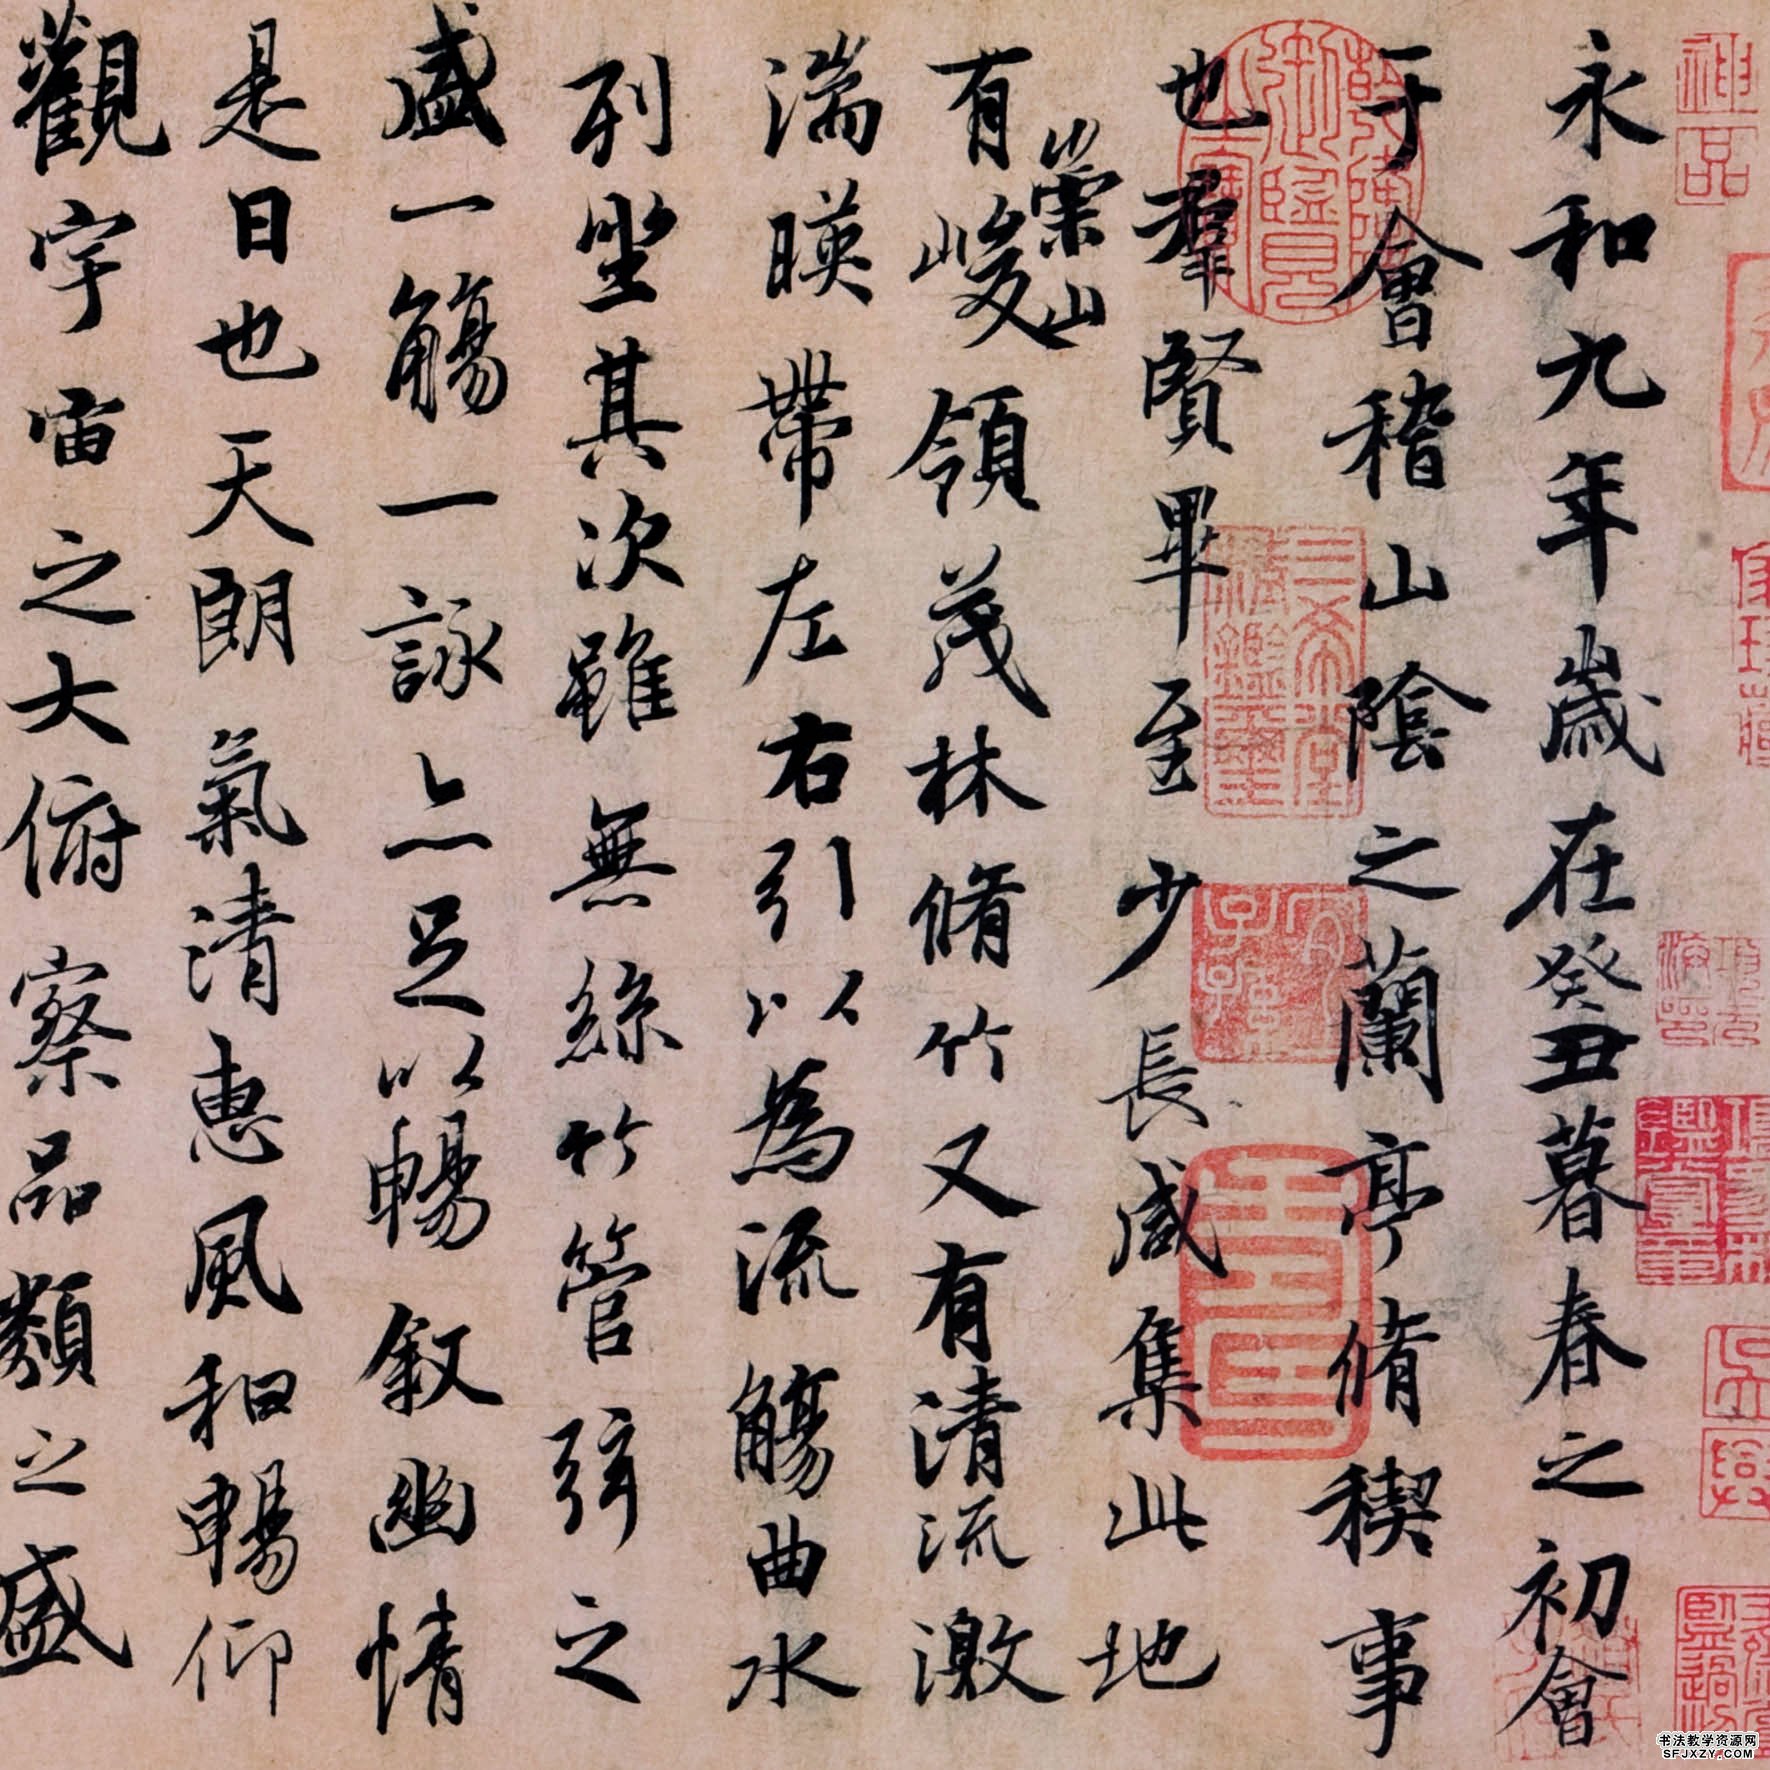 永和九年歲在癸丑暮春之初會
于會稽山陰之蘭亭脩禊事
也羣賢畢至少長咸集此地
有崇山峻領茂林脩竹又有清流激
湍暎帶左右引以為流觴曲水
列坐其次雖無絲竹管弦之
盛一觴一詠亦足以暢敘幽情
是日也天朗氣清惠風和暢仰
觀宇宙之大俯察品類之盛
神品
三希堂精鑑璽
宜子孫
書法教学资源网
SFJXZY.COM